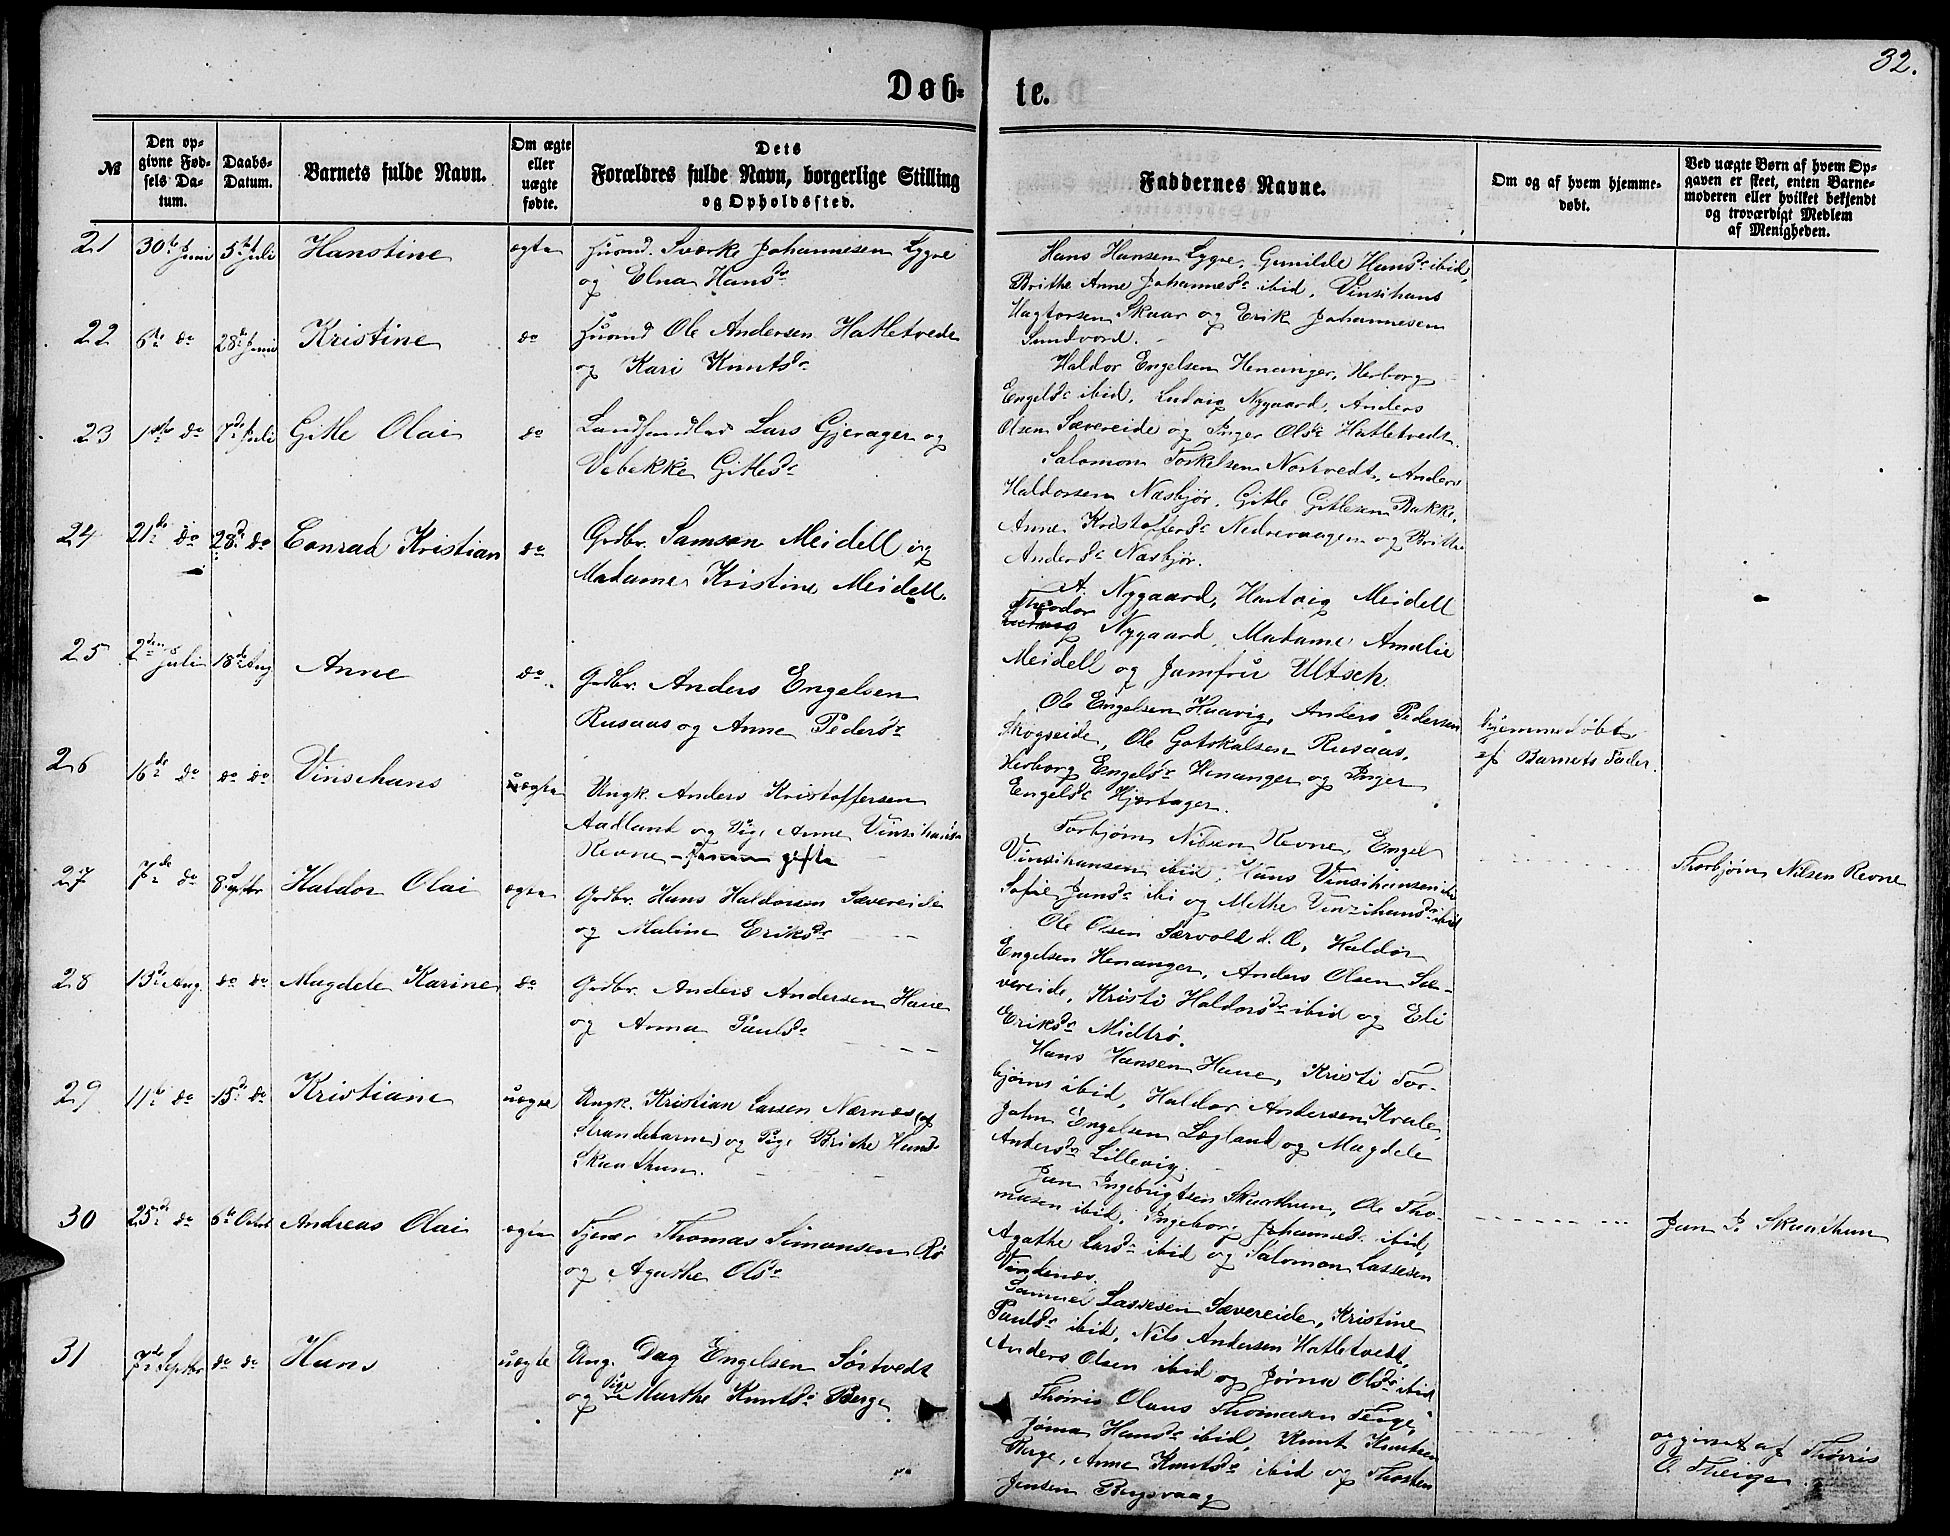 32.
Døb-
te.
№
Den op-
givne Fød-
sels Da-
tum.
Daabs-
Datum.
Barnets fulde Navn.
Om ægte
eller
uægte
fødte.
Dets
Forældres fulde Navn, borgerlige Stilling
og Opholdssted.
Faddernes Navne.
Om og af hvem hjemme-
døbt.
Ved uægte Børn af hvem Op-
gaven er skeet, enten Barne-
moderen eller hvilket bekjendt
og troværdigt Medlem
af Menigheden.
21 30te Juni 5te Juli Hanstine ægte Huusmd. Sverke Johannesen Lygre
og Elna Hansdr
Hans Hansen Lygre, Gunilde Hansdr ibid,
Brithe Anne Johannesdr ibid, Vinsihans
Hagtorsen Skaar og Erik Johannesen
Sundvord.
22 6te do 28de Juni Kristine do Huusmd Ole Andersen Hatletvede
og Kari Knutsdr
Haldor Engelsen Henanger, Herborg
Engelsdr ibid, Ludvig Nygaard, Anders
Olsen Sævereide og Inger Olsdr Hatletvedt.
23 1ste do 7de Juli Gitle Olai do Landhandler Lars Gjerager og
Vebekke Gitlesdr
Salomon Torkelsen Nortvedt, Anders
Haldorsen Næsbjør, Gitle Gitlesen Bakke,
Anne Kristoffersdr Nedrevaagen og Brithe
Andersdr Næsbjør.
24 21de do 28de do Conrad Kristian do Grdbr. Samson Meidell og
Madame Kristine Meidell.
A. Nygaard, Hartvig Meidell
Theodor
Nygaard, Madame Amalie
Meidell og Jomfru Ultsch.
25 2den Juli 18de Aug Anne do Grdbr. Anders Engelsen
Rusaas og Anne Pedersdr
Ole Engelsen Haavig, Anders Pedersen
Skogseide, Ole Gotskalsen Rusaas,
Herborg Engelsdr Henanger og Inger
Engelsdr Hjortager.
Hjemmedøbt
af Barnets Fader.
26 16de do do do Vinsehans uægte Ungk. Anders Kristoffersen
Aadland og Pige Anne Vinsihansdr
Revne
Torbjørn Nilsen Revne, Engel
Vinsihansen ibid, Hans Vinsihansen ibi
Sofie Jansdr ibi og Methe Vinzihansdr ibid
Thorbjørn Nilsen Revne
27 7de do 8 Septbr Haldor Olai ægte Grdbr. Hans Haldorsen Sævereide
og Malina Eriksdr
Ole Olsen Særvold d. Æ, Haldor
Engelsen Henanger, Anders Olsen Sæ-
vereide, Kristi Haldorsdr ibid og Eli
Eriksdr Midtrø.
28 15de Aug. do do Magdele Karine do Grdbr. Anders Andersen Haue
og Anna Paulsdr
Hans Hansen Haue, Kristi Tor-
bjørns ibid, Haldor Andersen Kvale,
John Engelsen Legland og Magdele
Andersdr Lillevig.
29 11te do 15de do Kristiane uægte Ungk. Kristian Larsen Nærnes (af
Strandebarm) og Pige Brithe Hansdr
Skaathun.
Jan Ingebrigtsen Skaathun, Ole Tho-
masen ibid, Ingeborg Johannesdr ibid,
Agathe Larsdr ibid og Salomon Lassesen
Vindenæs.
Jan I. Skaathun
30 25de do 6te Octbr Andreas Olai ægte Tjener Thomas Simonsen Rø
og Agathe Olsdr
Samuel Lassesen Sævereide, Kristine
Paulsdr ibid, Nils Andersen Hatletvedt,
Anders Olsen ibid og Jørna Olsdr ibid
31 7de Septbr do do Hans uægte Ung. Dag Engelsen Sørtvedt
og Pige Marthe Knutsdr Berge
Thørris Olaus Thomasen Teige,
Jørna Hansdr ibid, Knut Knutsen
Berge, Anne Knutsdr ibid og Thorsten
Jensen Bergsvaag
opgivet af Thørris
O. Theige.